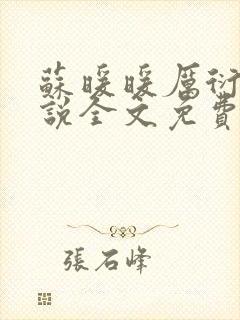 蘇暖暖厲衍
說全文免費
張石峰